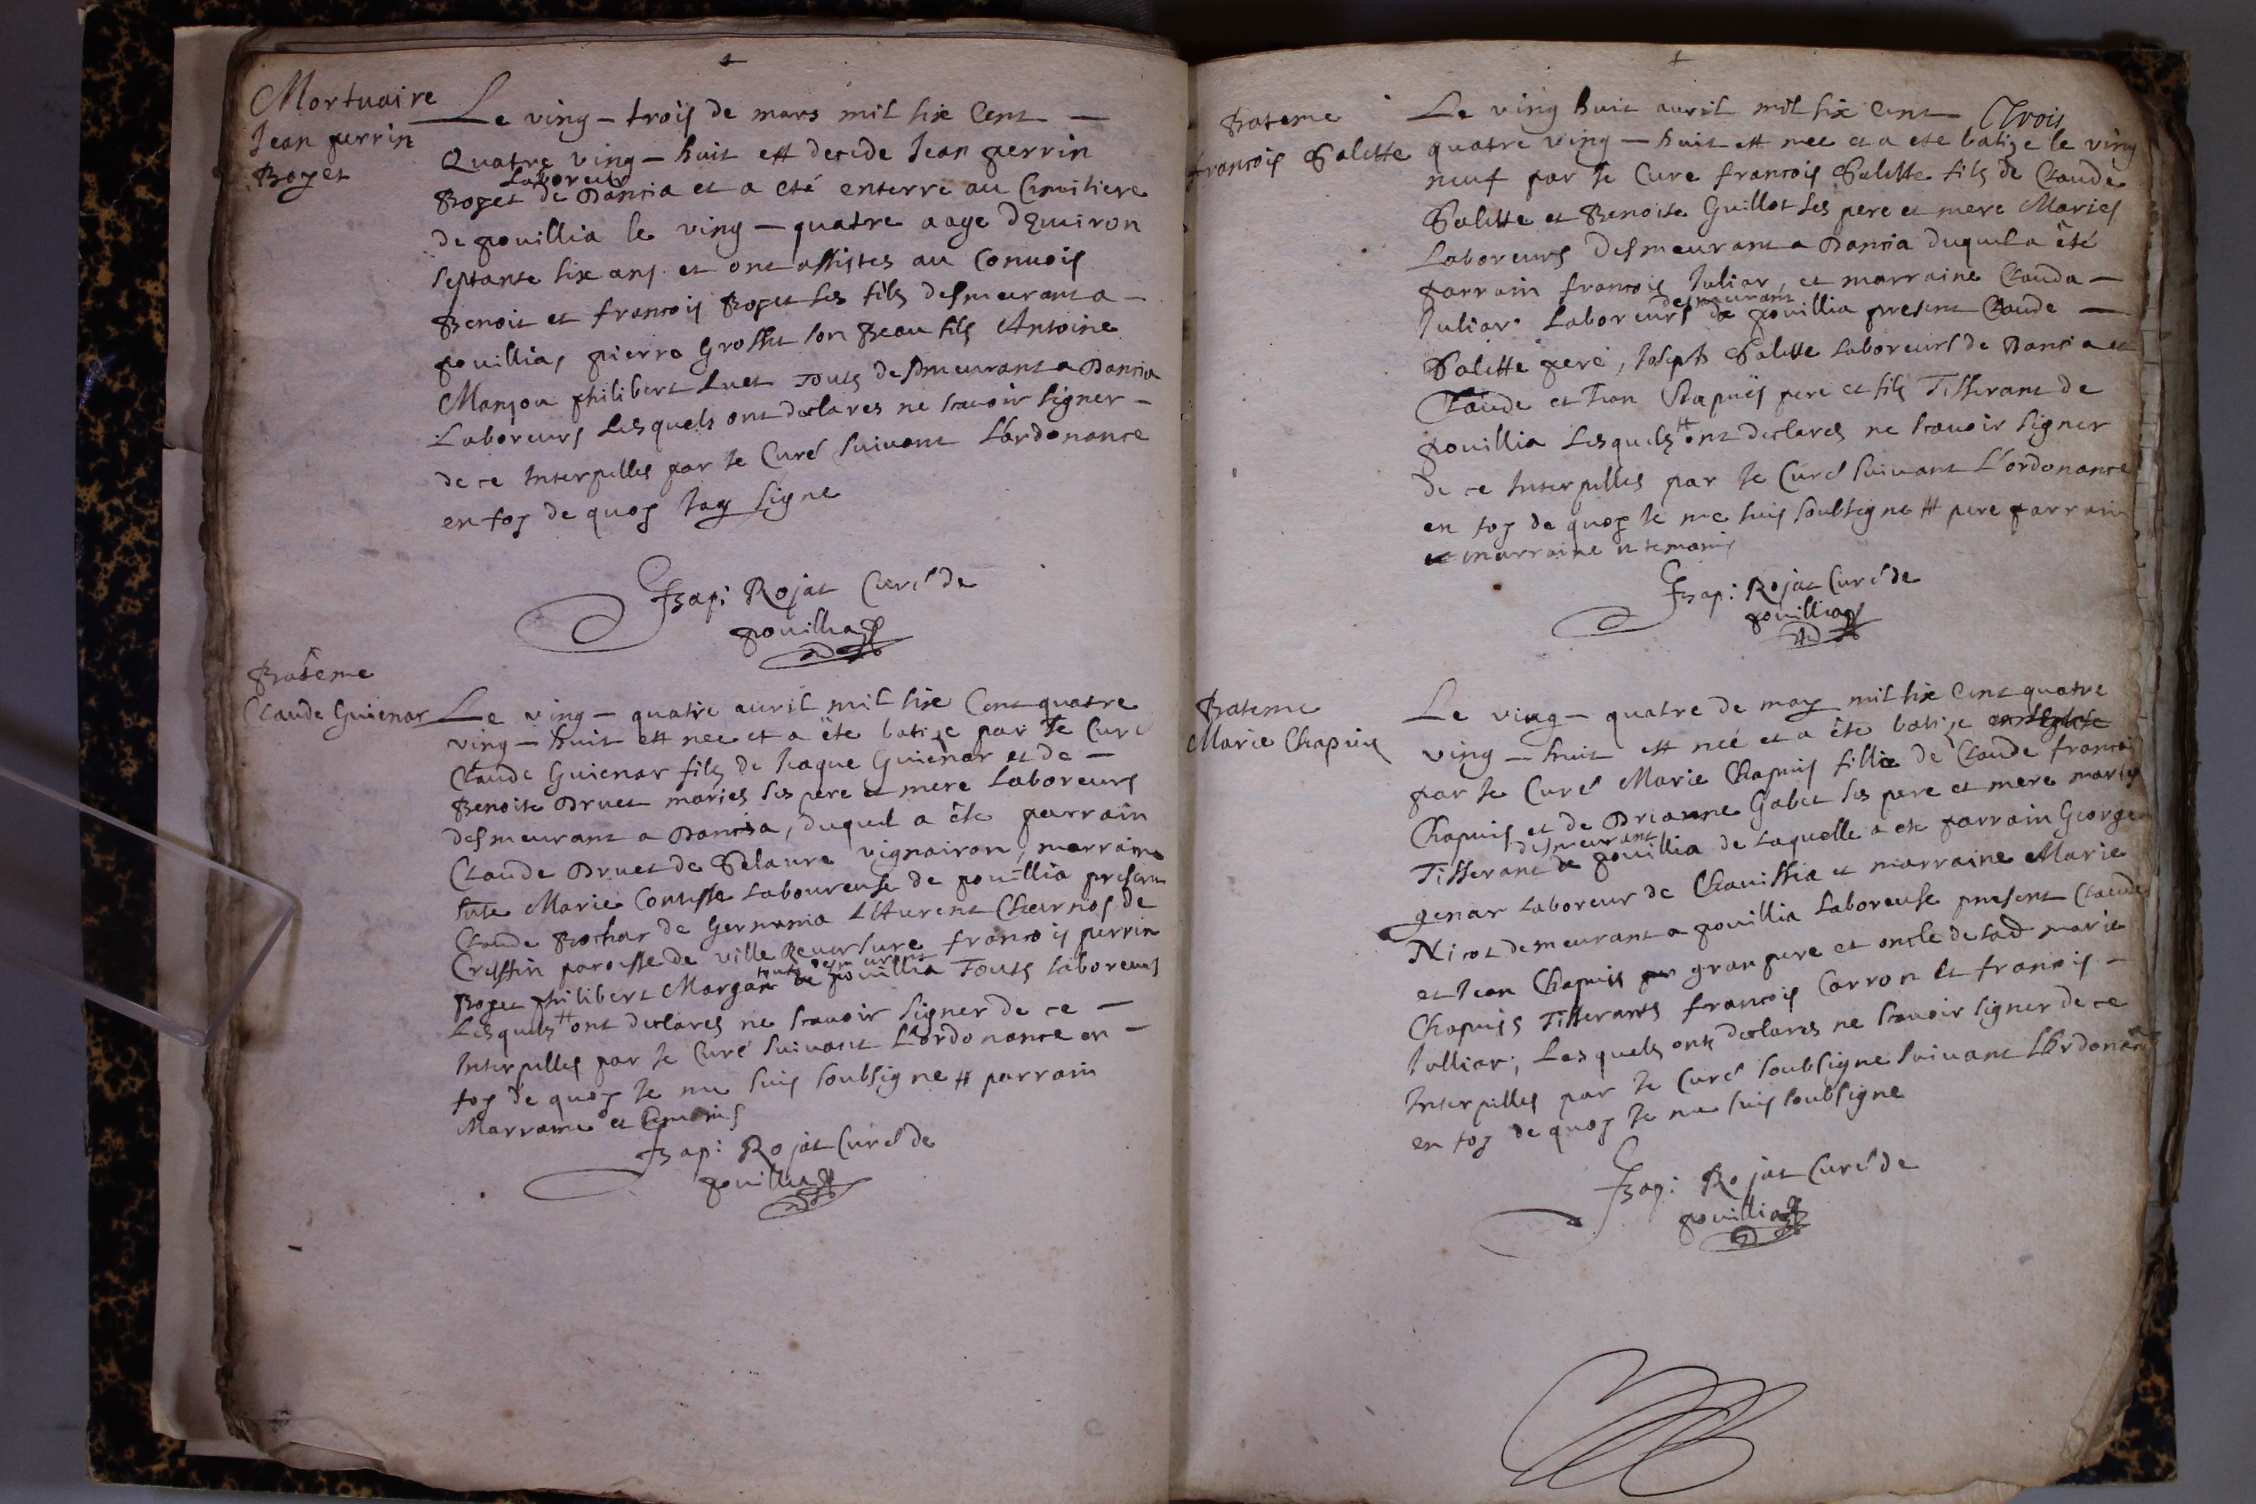 Mortuaire
Jean perrin
Boget
Le ving - trois de mars mil six Cent -
Quatre ving - huit est decide Jean perrin
Laboreur
Boget de Dancia et a eté enterre au Cimitiere
de pouillia le ving - quatre aage d'Environ
septante six ans et ont assistes au Convois
Benoit et francois Boget ses fils desmeurant a -
pouillia, pierre Grosset son Beau fils Antoine
Manjon philibert Luet Touts desmeurant a Dancia
Laboreurs Lesquels ont declares ne scavoir signer -
de ce Interpelles par Je Curé suivant L'ordonance
en foy de quoy Jay signe
Bapi: Rojat Curé de
pouillia
Bateme
Claude Guienar
Le ving - quatre auril mil six Cent quatre
ving - huit est nee et a ete batize par Je Curé
Claude Guienar fils de Jaque Guienar et de -
Benoite Druet maries ses pere et mere Laboreurs
desmeurant a Dancia, duquel a ête parrain
Claude Druet de vignairon, marraine
Marie Contesse Laboureuse de pouillia present
Claude Bochar de Germania L'Aurent Charnos de
Cressin paroisse de ville Reuersure francois perrin
touts desmeurant
Boget philibert Morgan de pouillia Touts laboreurs
Lesquels # ont declares ne scavoir signer de ce -
Interpelles par Je Curé suivant L'ordonance en -
foy de quoy Je me suis soubsigne # parrain
Marraine et temoins
Bapi: Rojat Curé de
pouillia
Bateme
francois Palette
Le ving huit auril mil six Cent
quatre ving - huit est nee et a ete batize le ving
neuf par Je Cure francois Palette fils de Claude
Palette et Benoite Guillot ses pere et mere Maries
Laboreurs desmeurant a Dancia duquel a êté
parrain francois Juliar, et marraine Clauda -
desmeurant
Juliar Laboreurs de pouillia present Claude -
Palette pere, Joseph Palette Laboreurs de Dancia et
Claude et Jean Chapuis pere et fils Tisserant de
pouillia Lesquels # ont declares ne scavoir signer
de ce Interpelles par Je Curé suivant L'ordonance
en foy de quoy Je me suis soubsigne # pere parrain
et marraine et temoins
Bapi: Rojat Curé de
pouillia
Bateme
Marie Chapuis
Le ving - quatre de may mil six Cent quatre
ving - huit est neé et a ête batize en L'Eglise
par Je Curé Marie Chapuis fillie de Claude francois
Chapuis et de Drianne Gabet ses pere et mere maries
desmeurant
Tisserant de pouillia de Laquelle a ete parrain George
genar Laboreur de Chavissia et marraine Marie
Nicot demeurant a pouillia Laboreuse present Claude
et Jean Chapuis gran pere et oncle de lad marie
Chapuis Tisserants francois Carron et francois -
Julliar; Lesquels ont declares ne scavoir signer de ce
Interpelles par Je Curé soubsigne suivant L'ordonance
en foy de quoy Je me suis soubsigne
Bapi: Rojat Curé de
pouillia